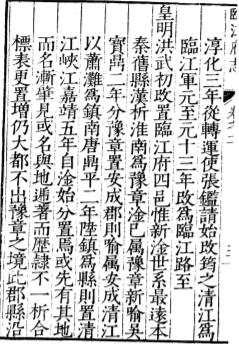 臨江府志
卷之二
淳化三年從轉運使張鑑請始改筠之清江爲
臨江軍元至元十三年改爲臨江路至
皇明洪武初改置臨江府四邑惟新淦世系最遠本
秦舊縣漢析淮南爲豫章淦已屬豫章新喻吳
寶鼎二年分豫章置安成郡則喻属安成清江
以蕭灘爲鎮南唐鼎平二年陞鎮爲縣則置清
江峽江嘉靖五年自淦始分置焉或先有其地
而名漸肇見或名與地遞著而歷隸不一析合
標表更置增仍大都不出豫章之境此郡縣沿